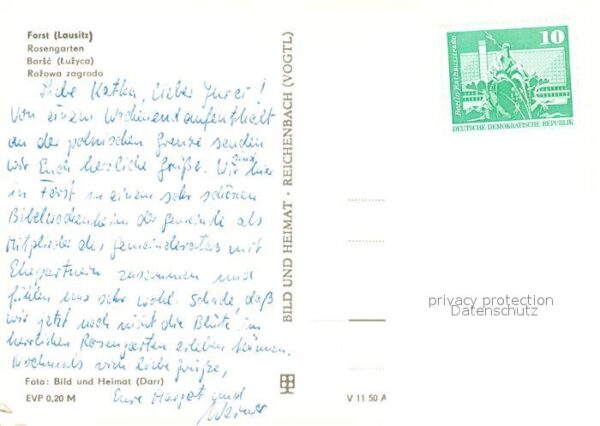 Forst (Lausitz)
Rosengarten
Boršć (Łužyca)
Rožowa zagroda
Liebe Katka, lieber Jurei!
Von einem Wochenendaufenthalt
an der polnischen Grenze senden
wir Euch herzliche Grüße. Wir sind hier
in Forst in einem sehr schönen
der Gemeinde als
Mitglieder des Gemeinderates mit
Ehepartnern zusammen und
fühlen uns sehr wohl. Schade daß
wir jetzt noch nicht die Blüte im
herrlichen Rosengarten erleben können.
Nochmals viele liebe Grüße,
Eure Margot und
Werner
Foto: Bild und Heimat (Darr)
EVP 0,20 M
BILD UND HEIMAT · REICHENBACH (VOGTL)
V 11 50 A
10
Berlin Rathausstraße
DEUTSCHE DEMOKRATISCHE REPUBLIK
privacy protection
Datenschutz